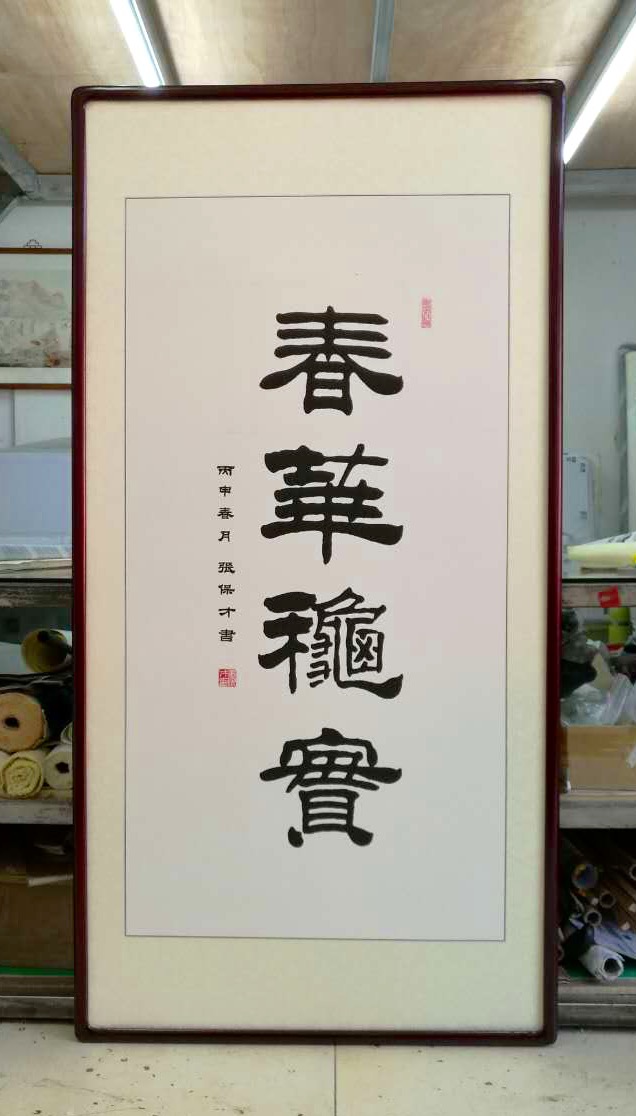 春華龝實
丙申春月 張保才書